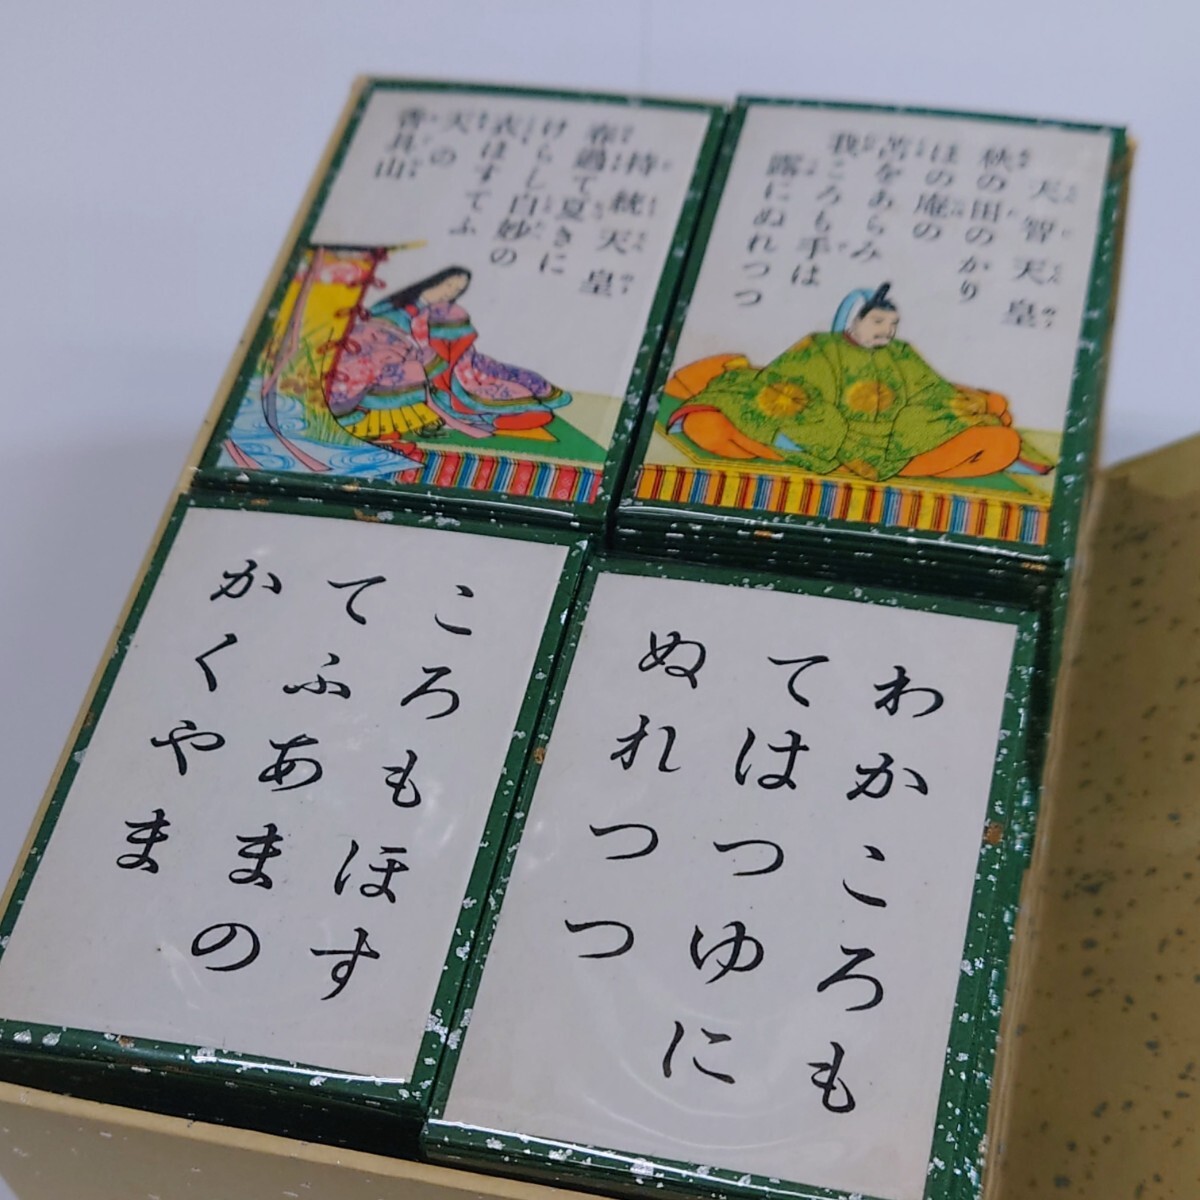 天智天皇
秋の田のかり
ほの庵の
苫をあらみ
我ころも手は
露にぬれつつ
持統天皇
春過て夏きに
けらし白妙の
衣ほすてふ
天の
香具山
わかころも
てはつゆに
ぬれつつ
ころもほす
てふあまの
かくやま